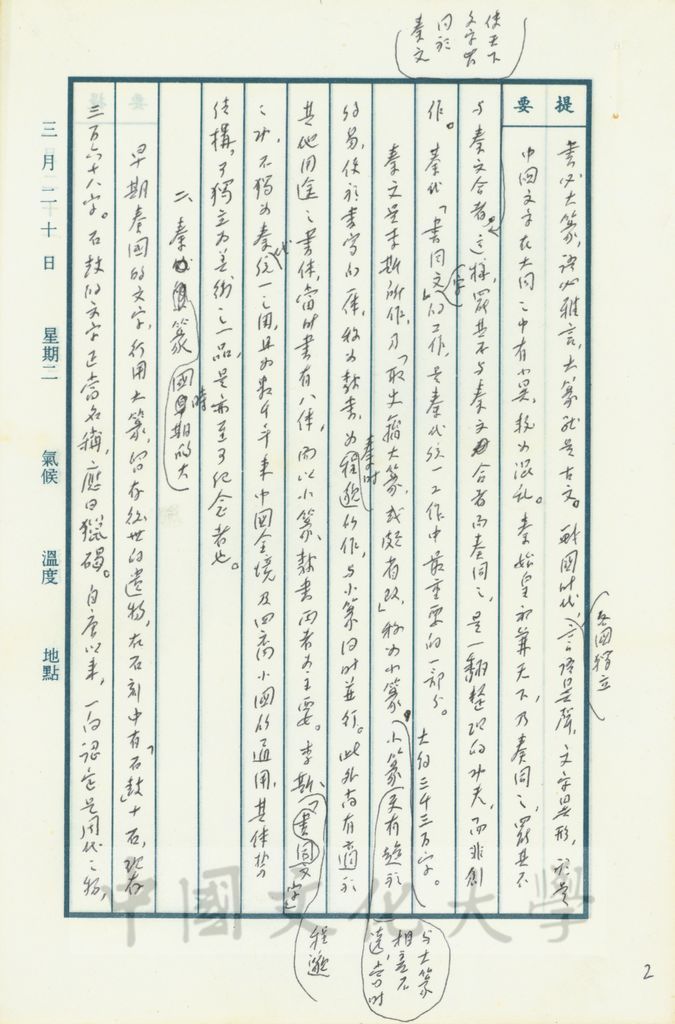 提要
書必大篆，語必雅言，大篆就是古文。戰國時代，言語異聲，文字異形，不言
各國獨立
中國文字在大同之中有小異，較为混乱。秦始皇初兼天下，乃奏同之，罷其不
与秦文合者。這樣，罷其不与秦文合者而奏同之，是一翻整理的功夫，而非創
使天下文字皆同於秦文
作。秦代「書同文字」的工作，是秦代統一工作中最重要的一部分。
秦文是李斯所作，乃「取史籀大篆，或頗省改」称为小篆，小篆更有趨於
大約三千三百字。
与大篆相差不遠，当时
约易，使於書写的一体，称为隸書，为秦时程邈所作，与小篆同时並行。此外尚有適於
其他用途之書体，當时書有八体，而以小篆、隸書兩者为主要。李斯、「書同文字」
程邈
之功，不獨为秦代統一之用，且为數千年来中國全境及四裔小國所通用，其体势
结構，可獨立为美術之一品，是亦至可纪念者也。
二、秦國早期時的大篆
早期秦國的文字，行用大篆，留存後世的遺物，在石刻中有「石鼓」十石，現存
三百六十八字。石鼓的文字正當名稱，應曰獵碣。自唐以来，一向認定是周代之物，
三月二十日　星期二　氣候　溫度　地點
中國文化大學
2